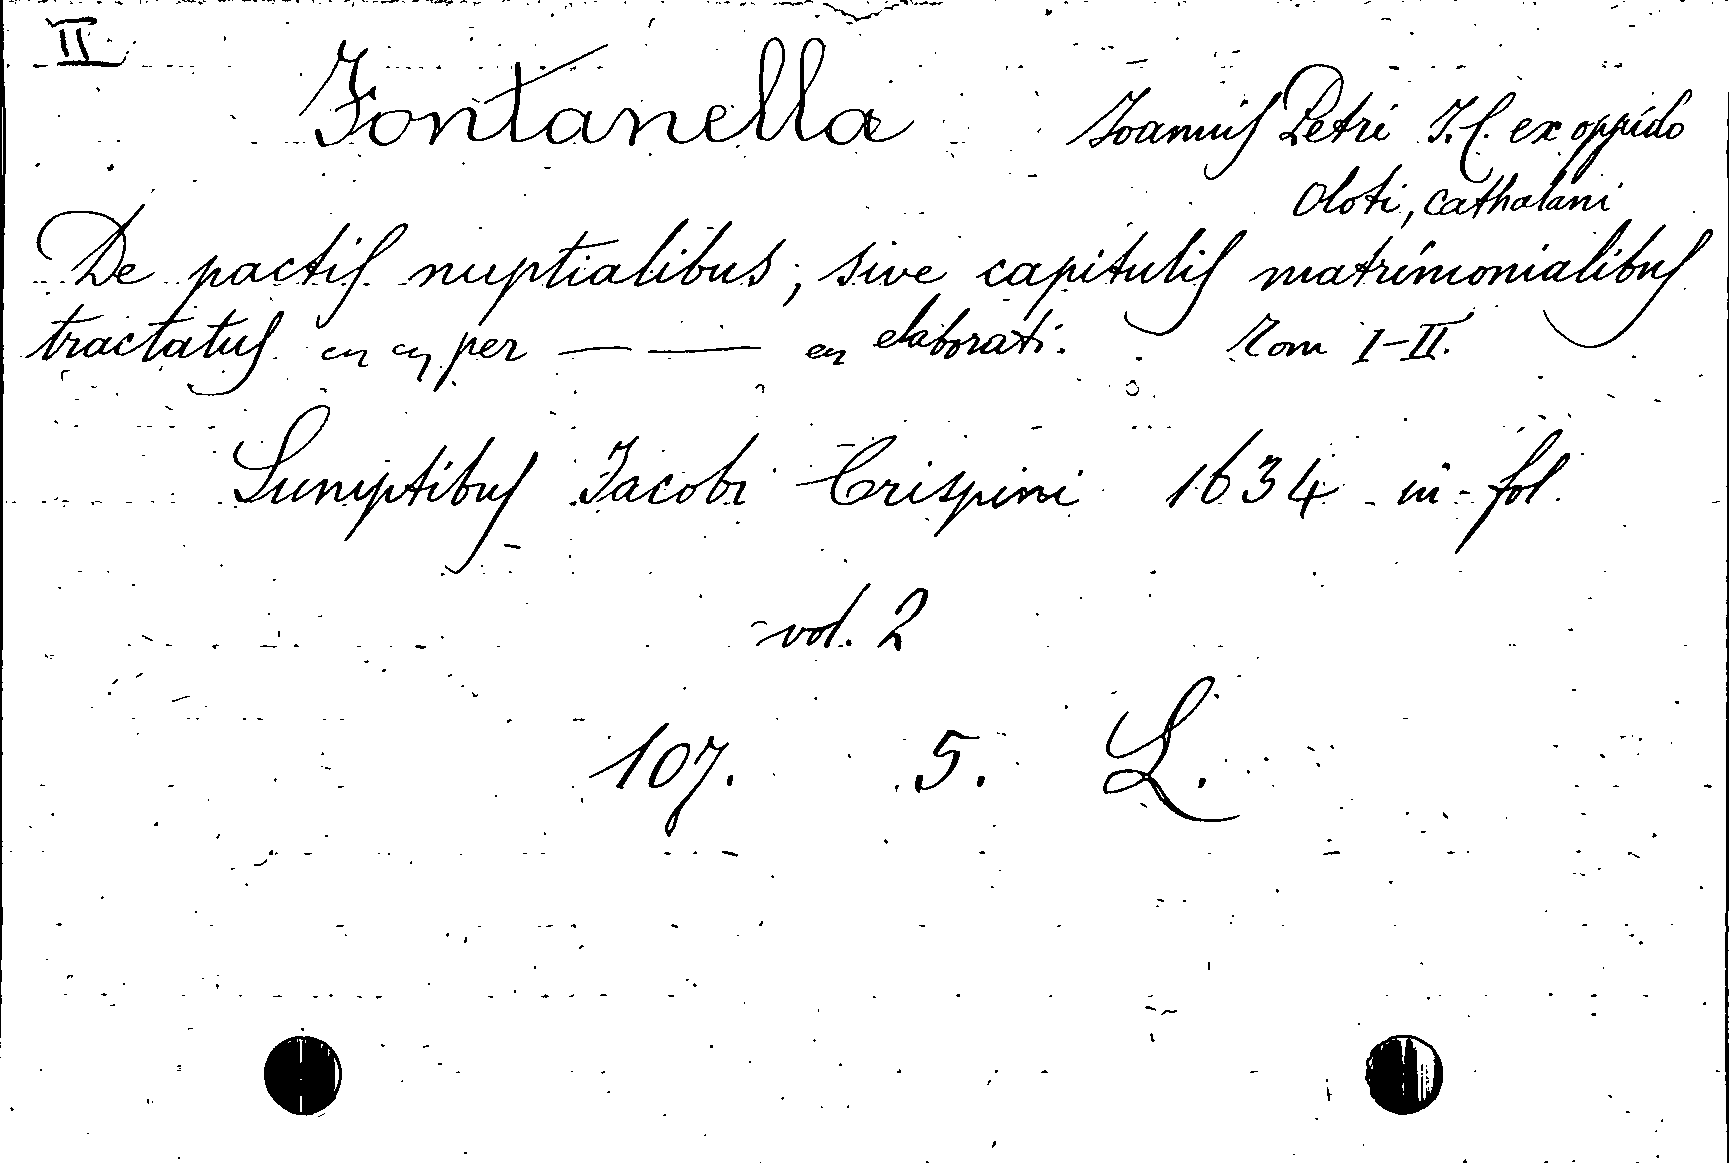 II
Fontanella Joannis Petri J.C. ex oppido
Oloti, Cathalani
De pactis nuptialibus, sive capitulis matrimonialibus
tractatus per — — elaborati. Tom I-II.
Sumptibus Jacobi Crispini 1634 in-fol.
vol. 2
107. 5. L.